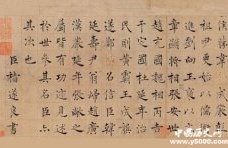 祖尹更始以儒術
進劉向王襃以文
章顯將相張安世
趙充國魏相丙吉
于定國杜延年治
民則黃霸王成龔
遂鄭弘召信臣韓
延壽尹翁歸趙廣
漢嚴延年張敞之
屬皆有功迹見述
於世參其名臣亦
其次也
臣褚遂良書
中国历史网